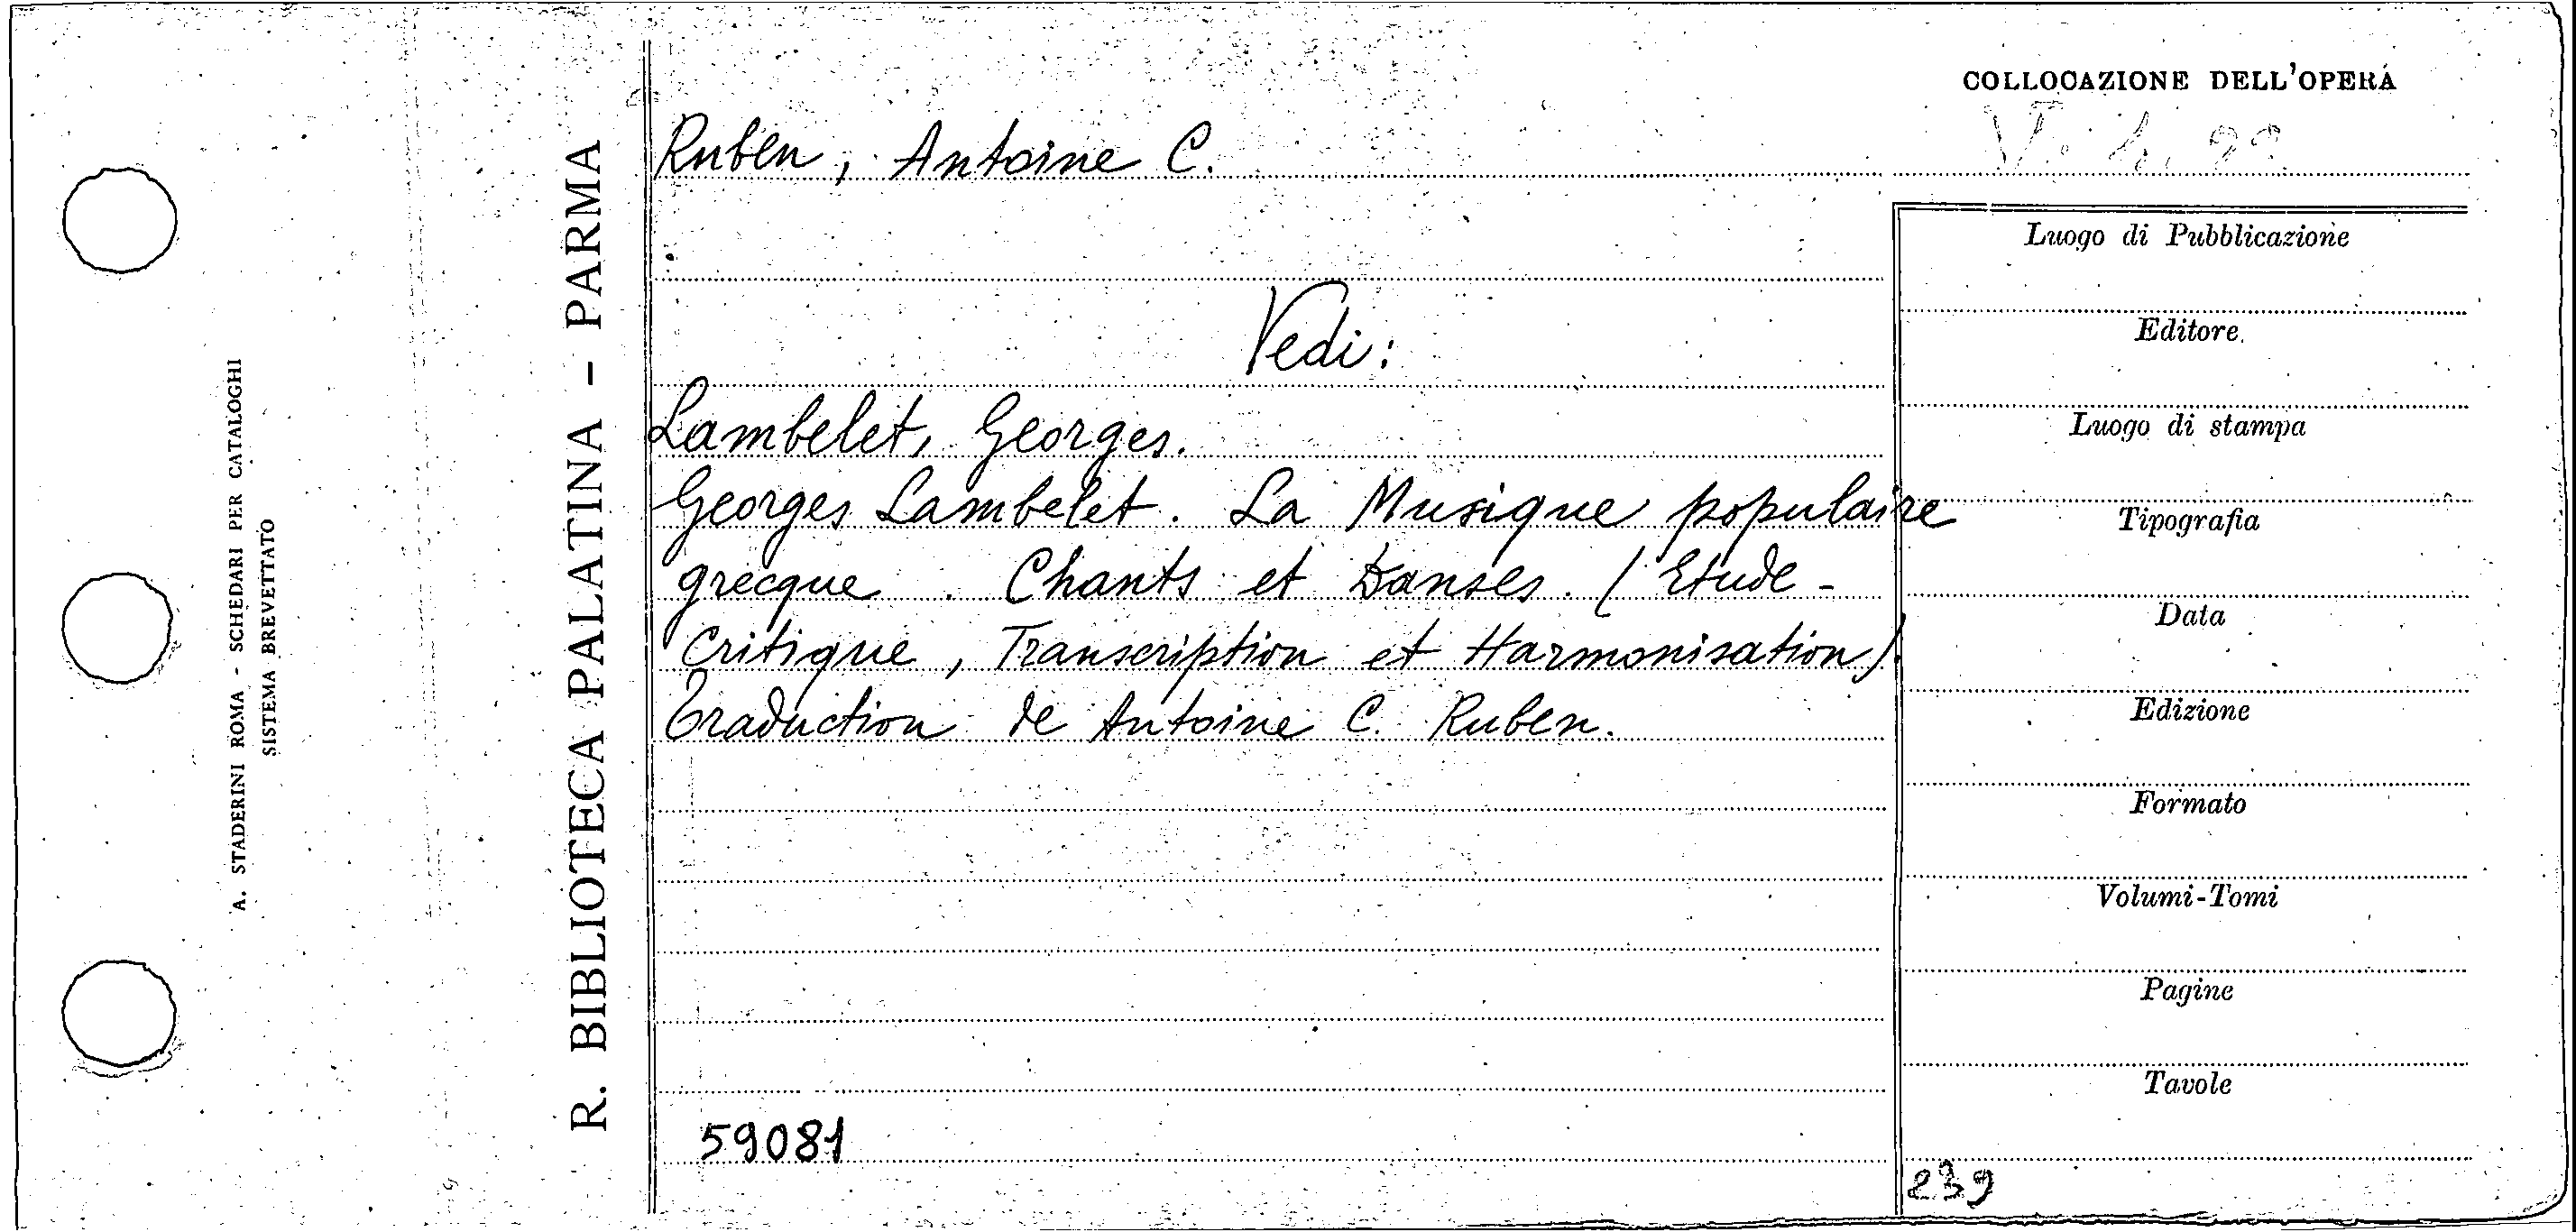 COLLOCAZIONE DELL'OPERA
Ruben, Antoine C.
Vedi:
Lambelet, Georges.
Georges Lambelet. La Musique populaire
grecque. Chants et Danses. (Etude-
Critique, Transcription et Harmonisation).
Traduction de Antoine C. Ruben.
59081
Luogo di Pubblicazione
Editore.
Luogo di stampa
Tipografia
Data
Edizione
Formato
Volumi-Tomi
Pagine
Tavole
239
R. BIBLIOTECA PALATINA - PARMA
A. STADERINI ROMA - SCHEDARI PER CATALOGHI
SISTEMA BREVETTATO